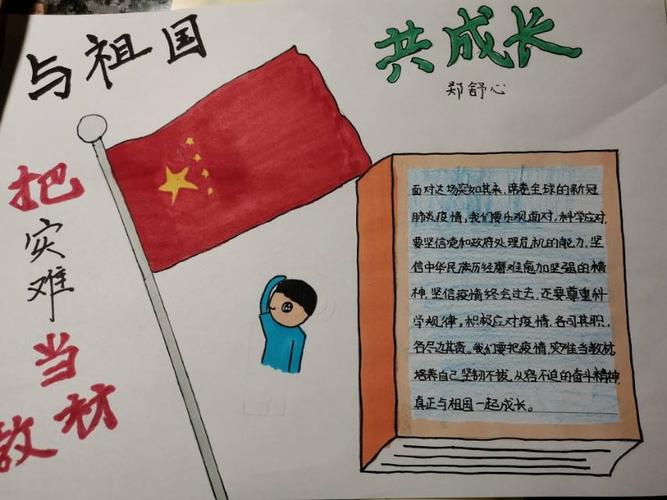 与祖国
共成长
郑舒心
把
灾
难
当
教材
面对这场突如其来，席卷全球的新冠
肺炎疫情，我们要乐观面对，科学应对，
要坚信党和政府处理危机的能力，坚
信中华民族历经磨难愈加坚强的精
神，坚信疫情终会过去，还要尊重科
学规律，积极应对疫情，各司其职，
各尽其责。我们要把疫情，灾难当教材，
培养自己坚韧不拔，从容不迫的奋斗精神，
真正与祖国一起成长。